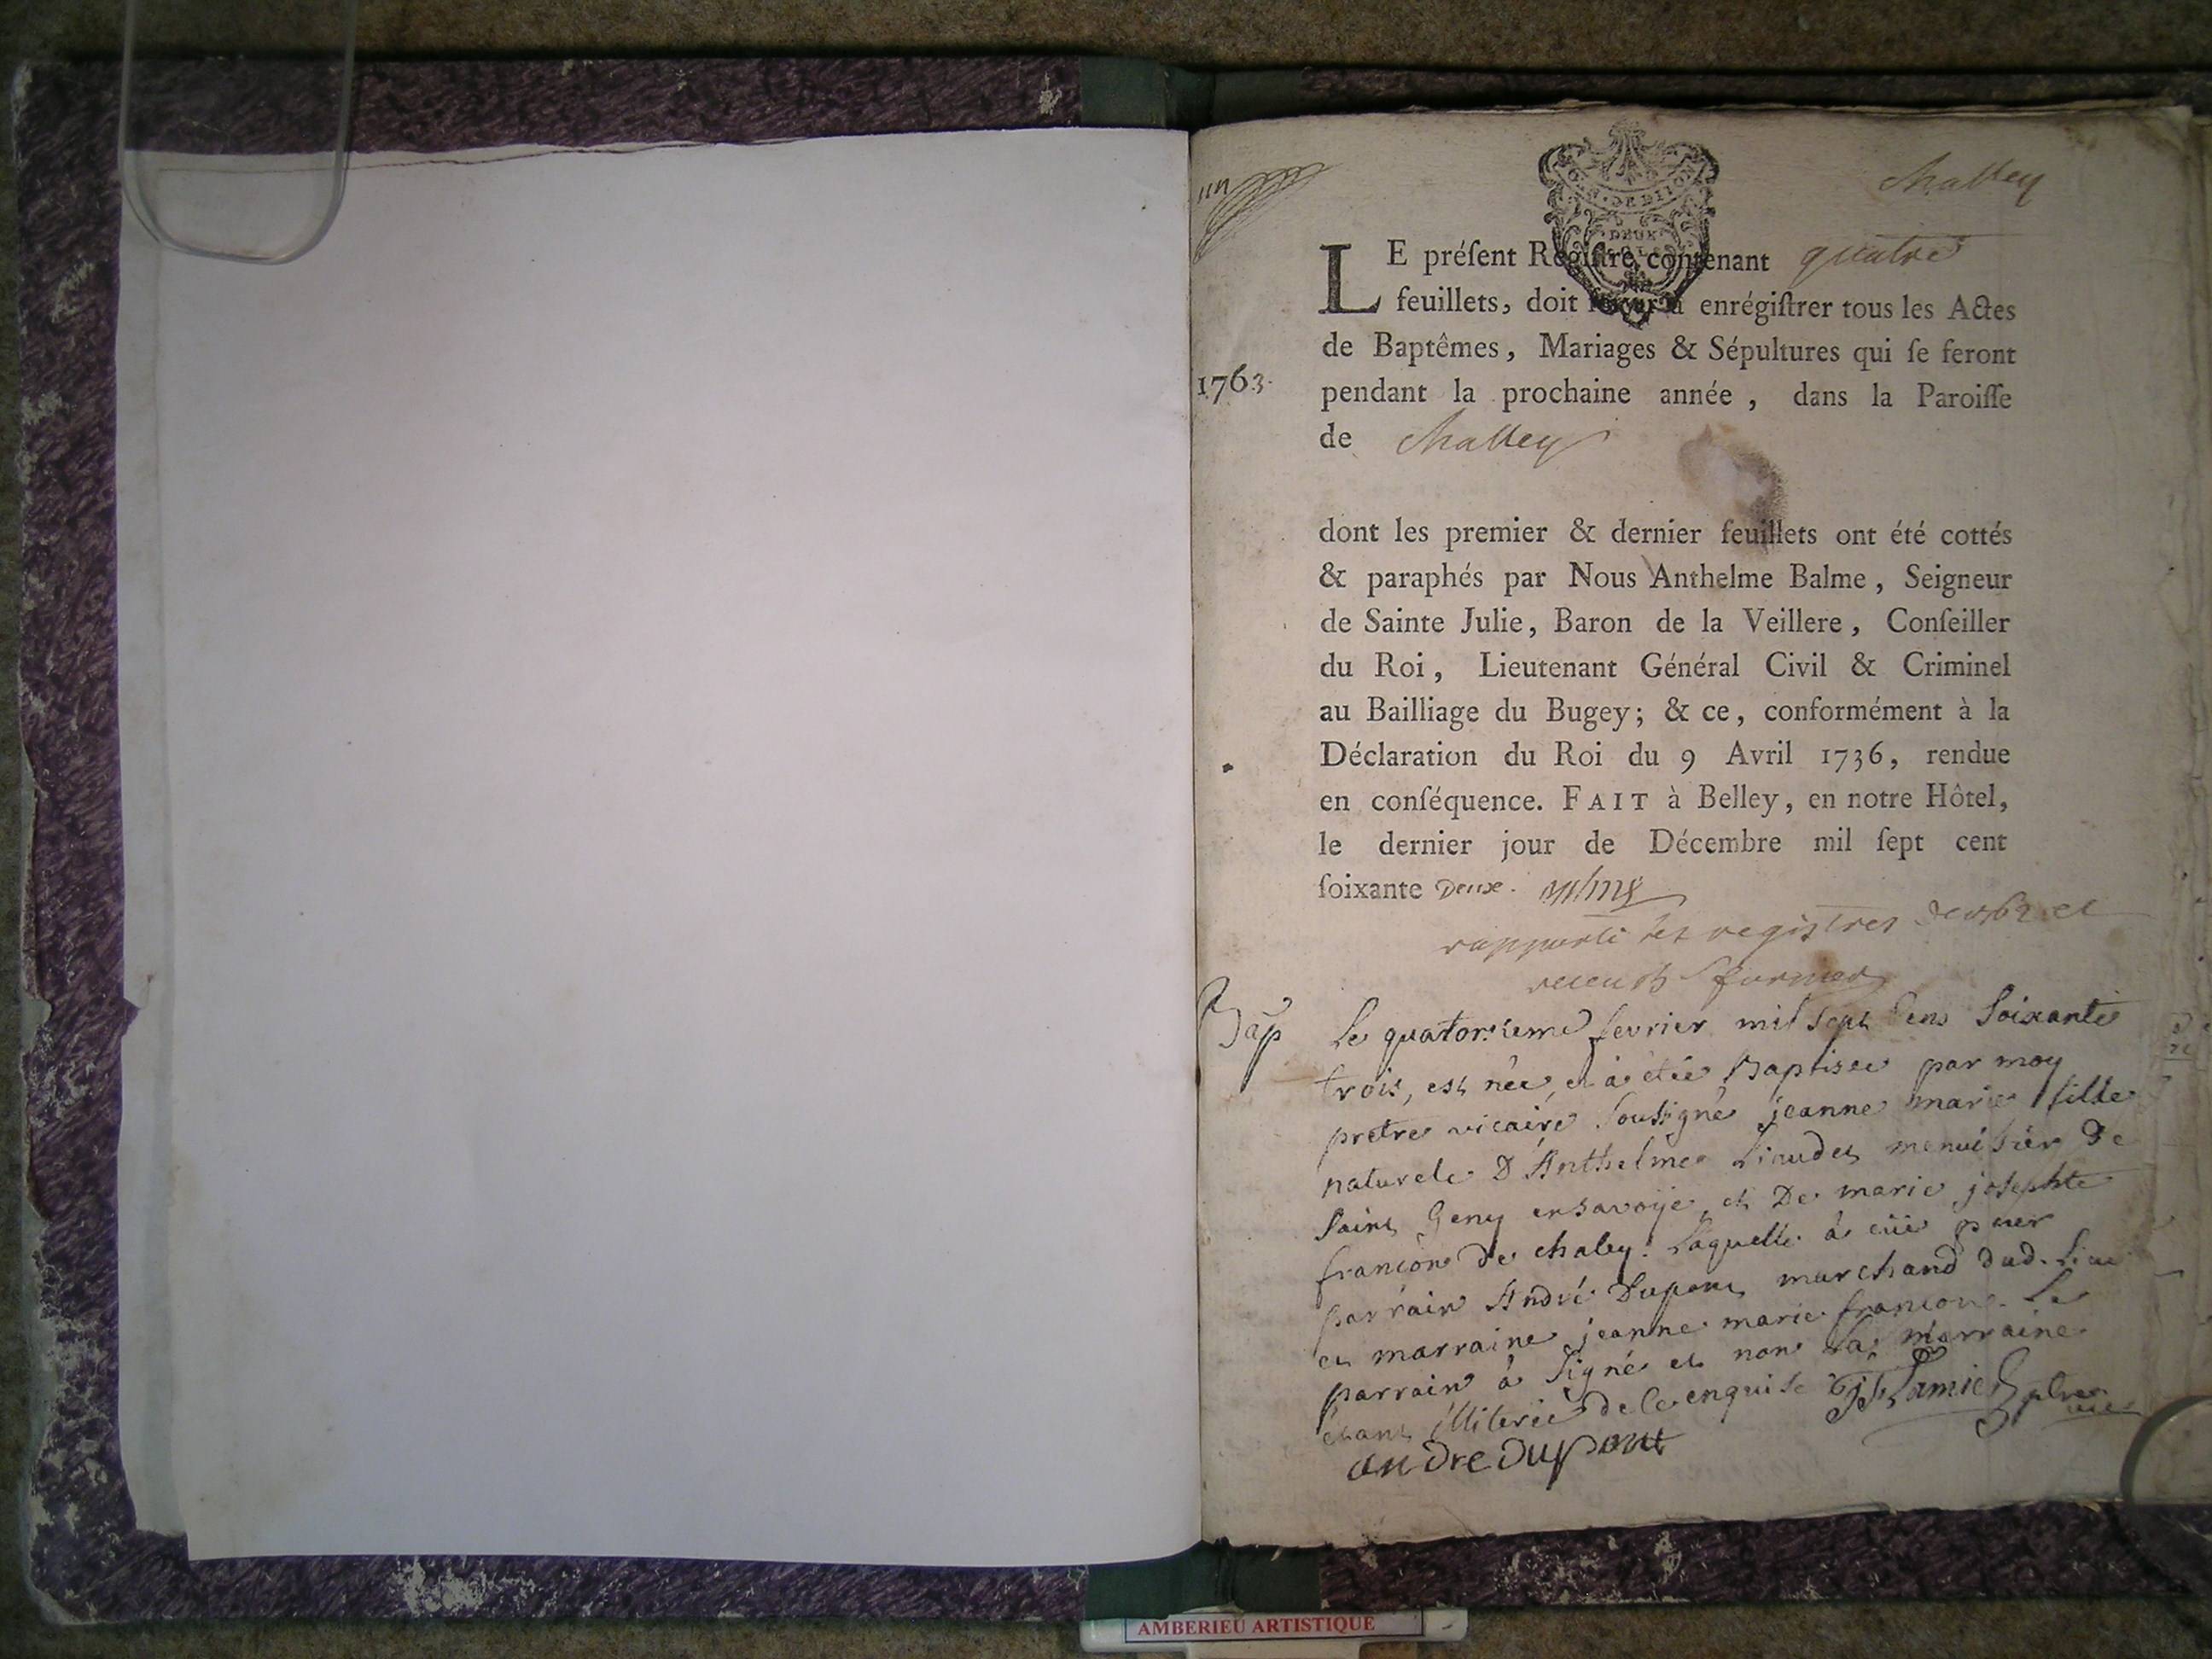 un
challey
GEN. DE DIJON
DEUX
LE préſent Regiſtre, contenant quatre
feuillets, doit ſervir à enrégiſtrer tous les Actes
de Baptêmes, Mariages & Sépultures qui ſe feront
1763.
pendant la prochaine année, dans la Paroiſſe
de challey
dont les premier & dernier feuillets ont été cottés
& paraphés par Nous Anthelme Balme, Seigneur
de Sainte Julie, Baron de la Veillere, Conſeiller
du Roi, Lieutenant Général Civil & Criminel
au Bailliage du Bugey; & ce, conformément à la
Déclaration du Roi du 9 Avril 1736, rendue
en conſéquence. FAIT à Belley, en notre Hôtel,
le dernier jour de Décembre mil ſept cent
ſoixante Deux.
rapporté les registres de 1762 et
Bap
Le quatorzieme fevrier mil sept Cens Soixante
trois, est née, et à étée Baptisée par moy
pretre vicaire Soussigné jeanne marie fille
naturele D'Anthelme Liaudet menuisier De
Saint Geny en Savoye, et De marie josephte
francon De chaley. Laquelle à eüe pour
parrain André Dupont marchand dud. Lieu
et marraine jeanne marie francon. Le
parrain à Signé et non La marraine
étant illiterée de ce enquise Lamier ptre vic
andre Dupont
AMBERIEU ARTISTIQUE